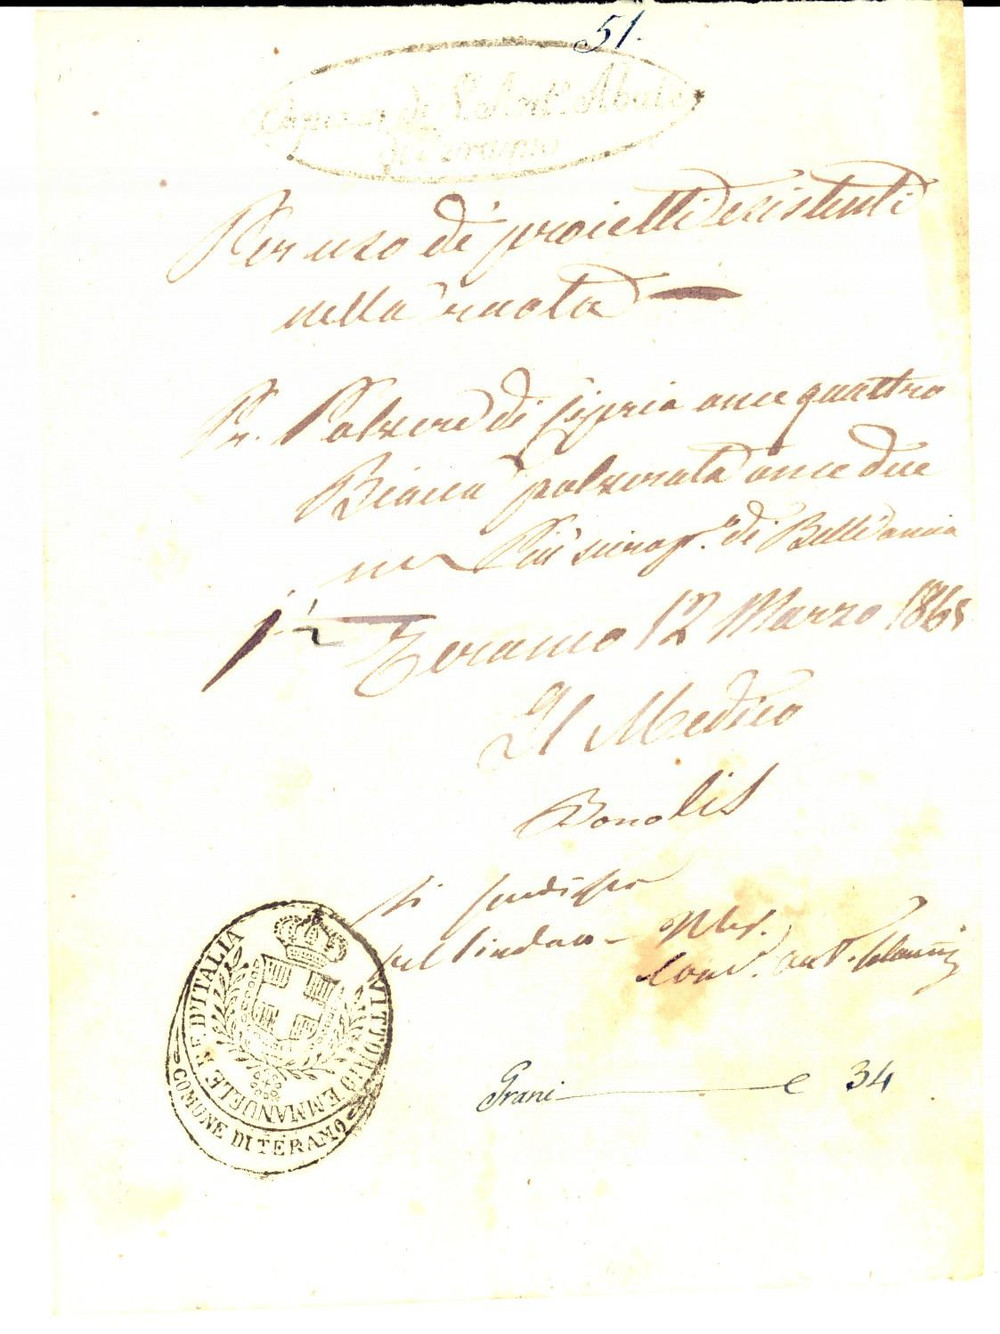 51.
di S. Ant.º Abate
di Teramo
Per uso di proietti esistenti
nella ruota
Pr. Polvere di Cipria once quattro
Biacca polverata once due
di Belladonna
Teramo 12 Marzo 1865
Il Medico
Bonolis
Si spedisca
Pel Sindaco
Grani 34
VITTORIO EMMANUELE RE D'ITALIA
COMUNE DI TERAMO